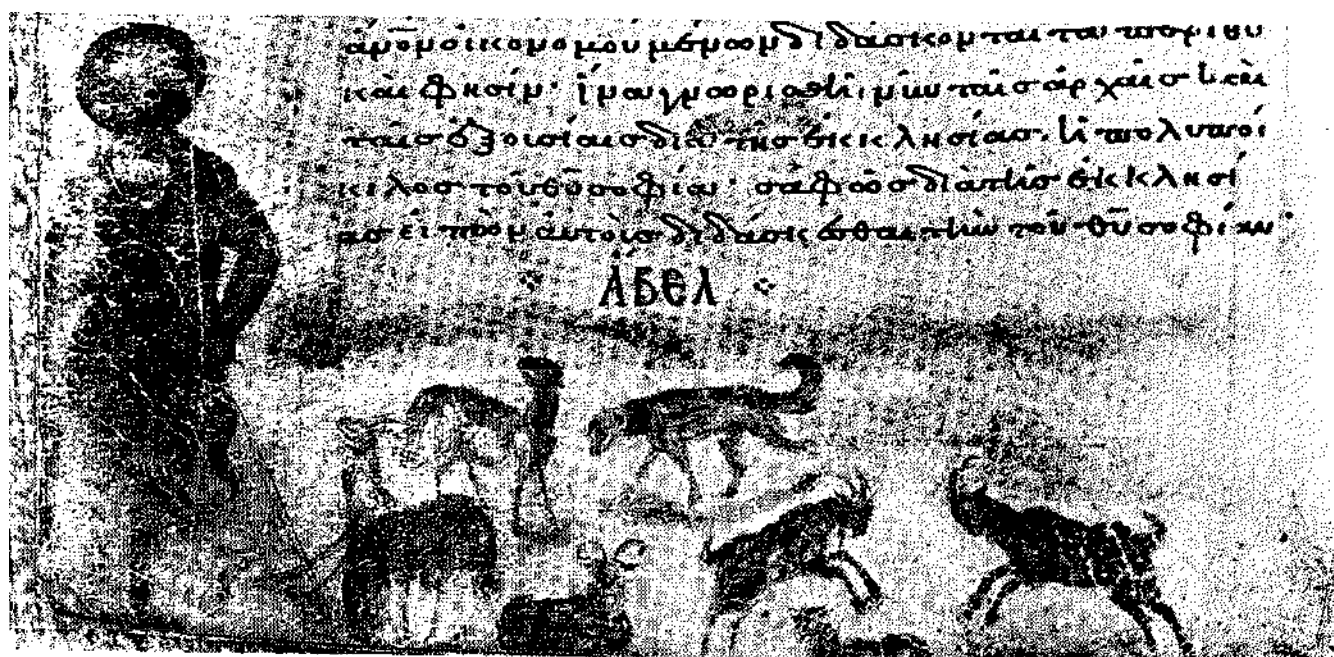 οἰκονομουμένων διδάσκονται
καὶ φησίν· ἵνα γνωρισθῆ νῦν ταῖς ἀρχαῖς καὶ
ταῖς ἐξουσίαις διὰ τῆς ἐκκλησίας. ἡ πολυποί
κιλος τοῦ θῦ σοφία· σαφῶς διὰ τῆς ἐκκλησί
ας εἰπὼν αὐτοὺς διδάσκεσθαι τὴν τοῦ θῦ σοφίαν·
ἈΒΕΛ